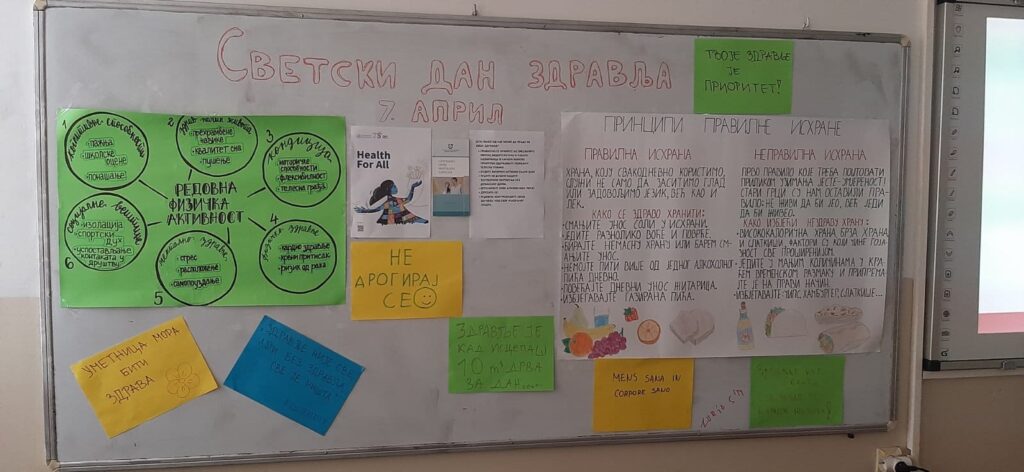 СВЕТСКИ ДАН ЗДРАВЉА
7. АПРИЛ
ТВОЈЕ ЗДРАВЉЕ
ЈЕ
ПРИОРИТЕТ!
1
когнитивне способности
пажња
школске
оцене
понашање
2
здрав начин живота
прехрамбене
навике
квалитет сна
пушење
3
кондиција
моторичке
способности
флексибилност
телесна грађа
РЕДОВНА
ФИЗИЧКА
АКТИВНОСТ
социјалне вештине
изолација
спортски
дух
успостављање
контаката у
друштву
6
ментално здравље
стрес
расположење
самопоуздање
5
4
здравље
кардио здравље
крвни притисак
ризик од рака
75
Health
For All
НЕ
ДРОГИРАЈ
СЕ
ПРИНЦИПИ ПРАВИЛНЕ ИСХРАНЕ
ПРАВИЛНА ИСХРАНА
ХРАНА, КОЈУ СВАКОДНЕВНО КОРИСТИМО,
СЛУЖИ НЕ САМО ДА ЗАСИТИМО ГЛАД
ИЛИ ЗАДОВОЉИМО ЈЕЗИК, ВЕЋ КАО И
ЛЕК.
КАКО СЕ ЗДРАВО ХРАНИТИ:
СМАЊИТЕ УНОС СОЛИ У ИСХРАНИ.
ЈЕДИТЕ РАЗНОЛИКО ВОЋЕ И ПОВРЋЕ.
БИРАЈТЕ НЕМАСНУ ХРАНУ ИЛИ БАРЕМ СМ-
АЊИТЕ УНОС.
НЕМОЈТЕ ПИТИ ВИШЕ ОД ЈЕДНОГ АЛКОХОЛНОГ
ПИЋА ДНЕВНО.
ПОВЕЋАЈТЕ ДНЕВНИ УНОС ЖИТАРИЦА.
ИЗБЕГАВАЈТЕ ГАЗИРАНА ПИЋА.
НЕПРАВИЛНА ИСХРАНА
ПРВО ПРАВИЛО КОЈЕ ТРЕБА ПОШТОВАТИ
ПРИЛИКОМ УЗИМАЊА ЈЕСТЕ УМЕРЕНОСТ.
СТАРИ ГРЦИ СУ НАМ ОСТАВИЛИ ПРА-
ВИЛО: НЕ ЖИВИ ДА БИ ЈЕО, ВЕЋ ЈЕДИ
ДА БИ ЖИВЕО.
КАКО ИЗБЕЋИ НЕЗДРАВУ ХРАНУ:
ВИСОКОКАЛОРИЧНА ХРАНА, БРЗА ХРАНА
И СЛАТКИШИ, ФАКТОРИ СУ КОЈИ ЧИНЕ ГОЈА-
ЗНОСТ СВЕ ПРОШИРЕНИЈОМ.
ЈЕДИТЕ У МАЊИМ КОЛИЧИНАМА У КРА-
ЋЕМ ВРЕМЕНСКОМ РАЗМАКУ И ПРИПРЕМА-
ЈТЕ ЈЕ НА ПРАВИ НАЧИН.
ИЗБЕГАВАЈТЕ: ЧИПС, ХАМБУРГЕР, СЛАТКИШЕ...
УМЕТНИЦА МОРА
БИТИ
ЗДРАВА
ЗДРАВЉЕ НИЈЕ СВЕ,
АЛИ БЕЗ ЗДРАВЉА
СВЕ ЈЕ НИШТА
ЗДРАВЉЕ ЈЕ
КАД ИСЦЕПАШ
10 m³ ДРВА
ЗА ДАН....
MENS SANA IN
CORPORE SANO